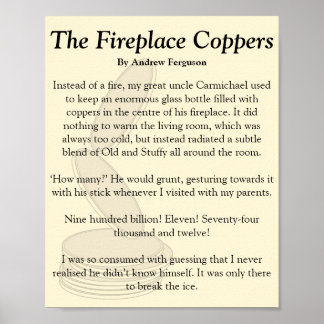 The Fireplace Coppers
By Andrew Ferguson
Instead of a fire, my great uncle Carmichael used
to keep an enormous glass bottle filled with
coppers in the centre of his fireplace. It did
nothing to warm the living room, which was
always too cold, but instead radiated a subtle
blend of Old and Stuffy all around the room.
'How many?' He would grunt, gesturing towards it
with his stick whenever I visited with my parents.
Nine hundred billion! Eleven! Seventy-four
thousand and twelve!
I was so consumed with guessing that I never
realised he didn't know himself. It was only there
to break the ice.